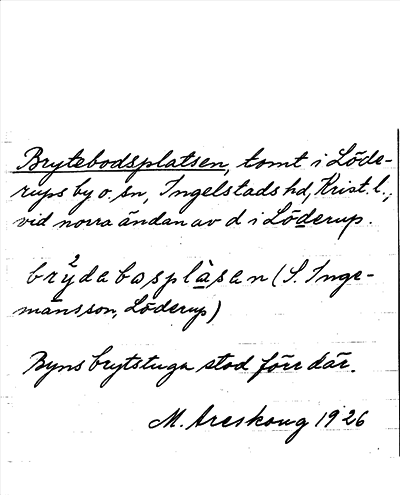 Brytebodsplatsen, tomt i Löde-
rups by o. sn, Ingelstads hd, Krist. l.,
vid norra ändan av d i Löderup.
brÿ²dabosplàsan (S. Inge-
mansson, Löderup)
Byns brytstuga stod förr där.
M. Areskoug 1926